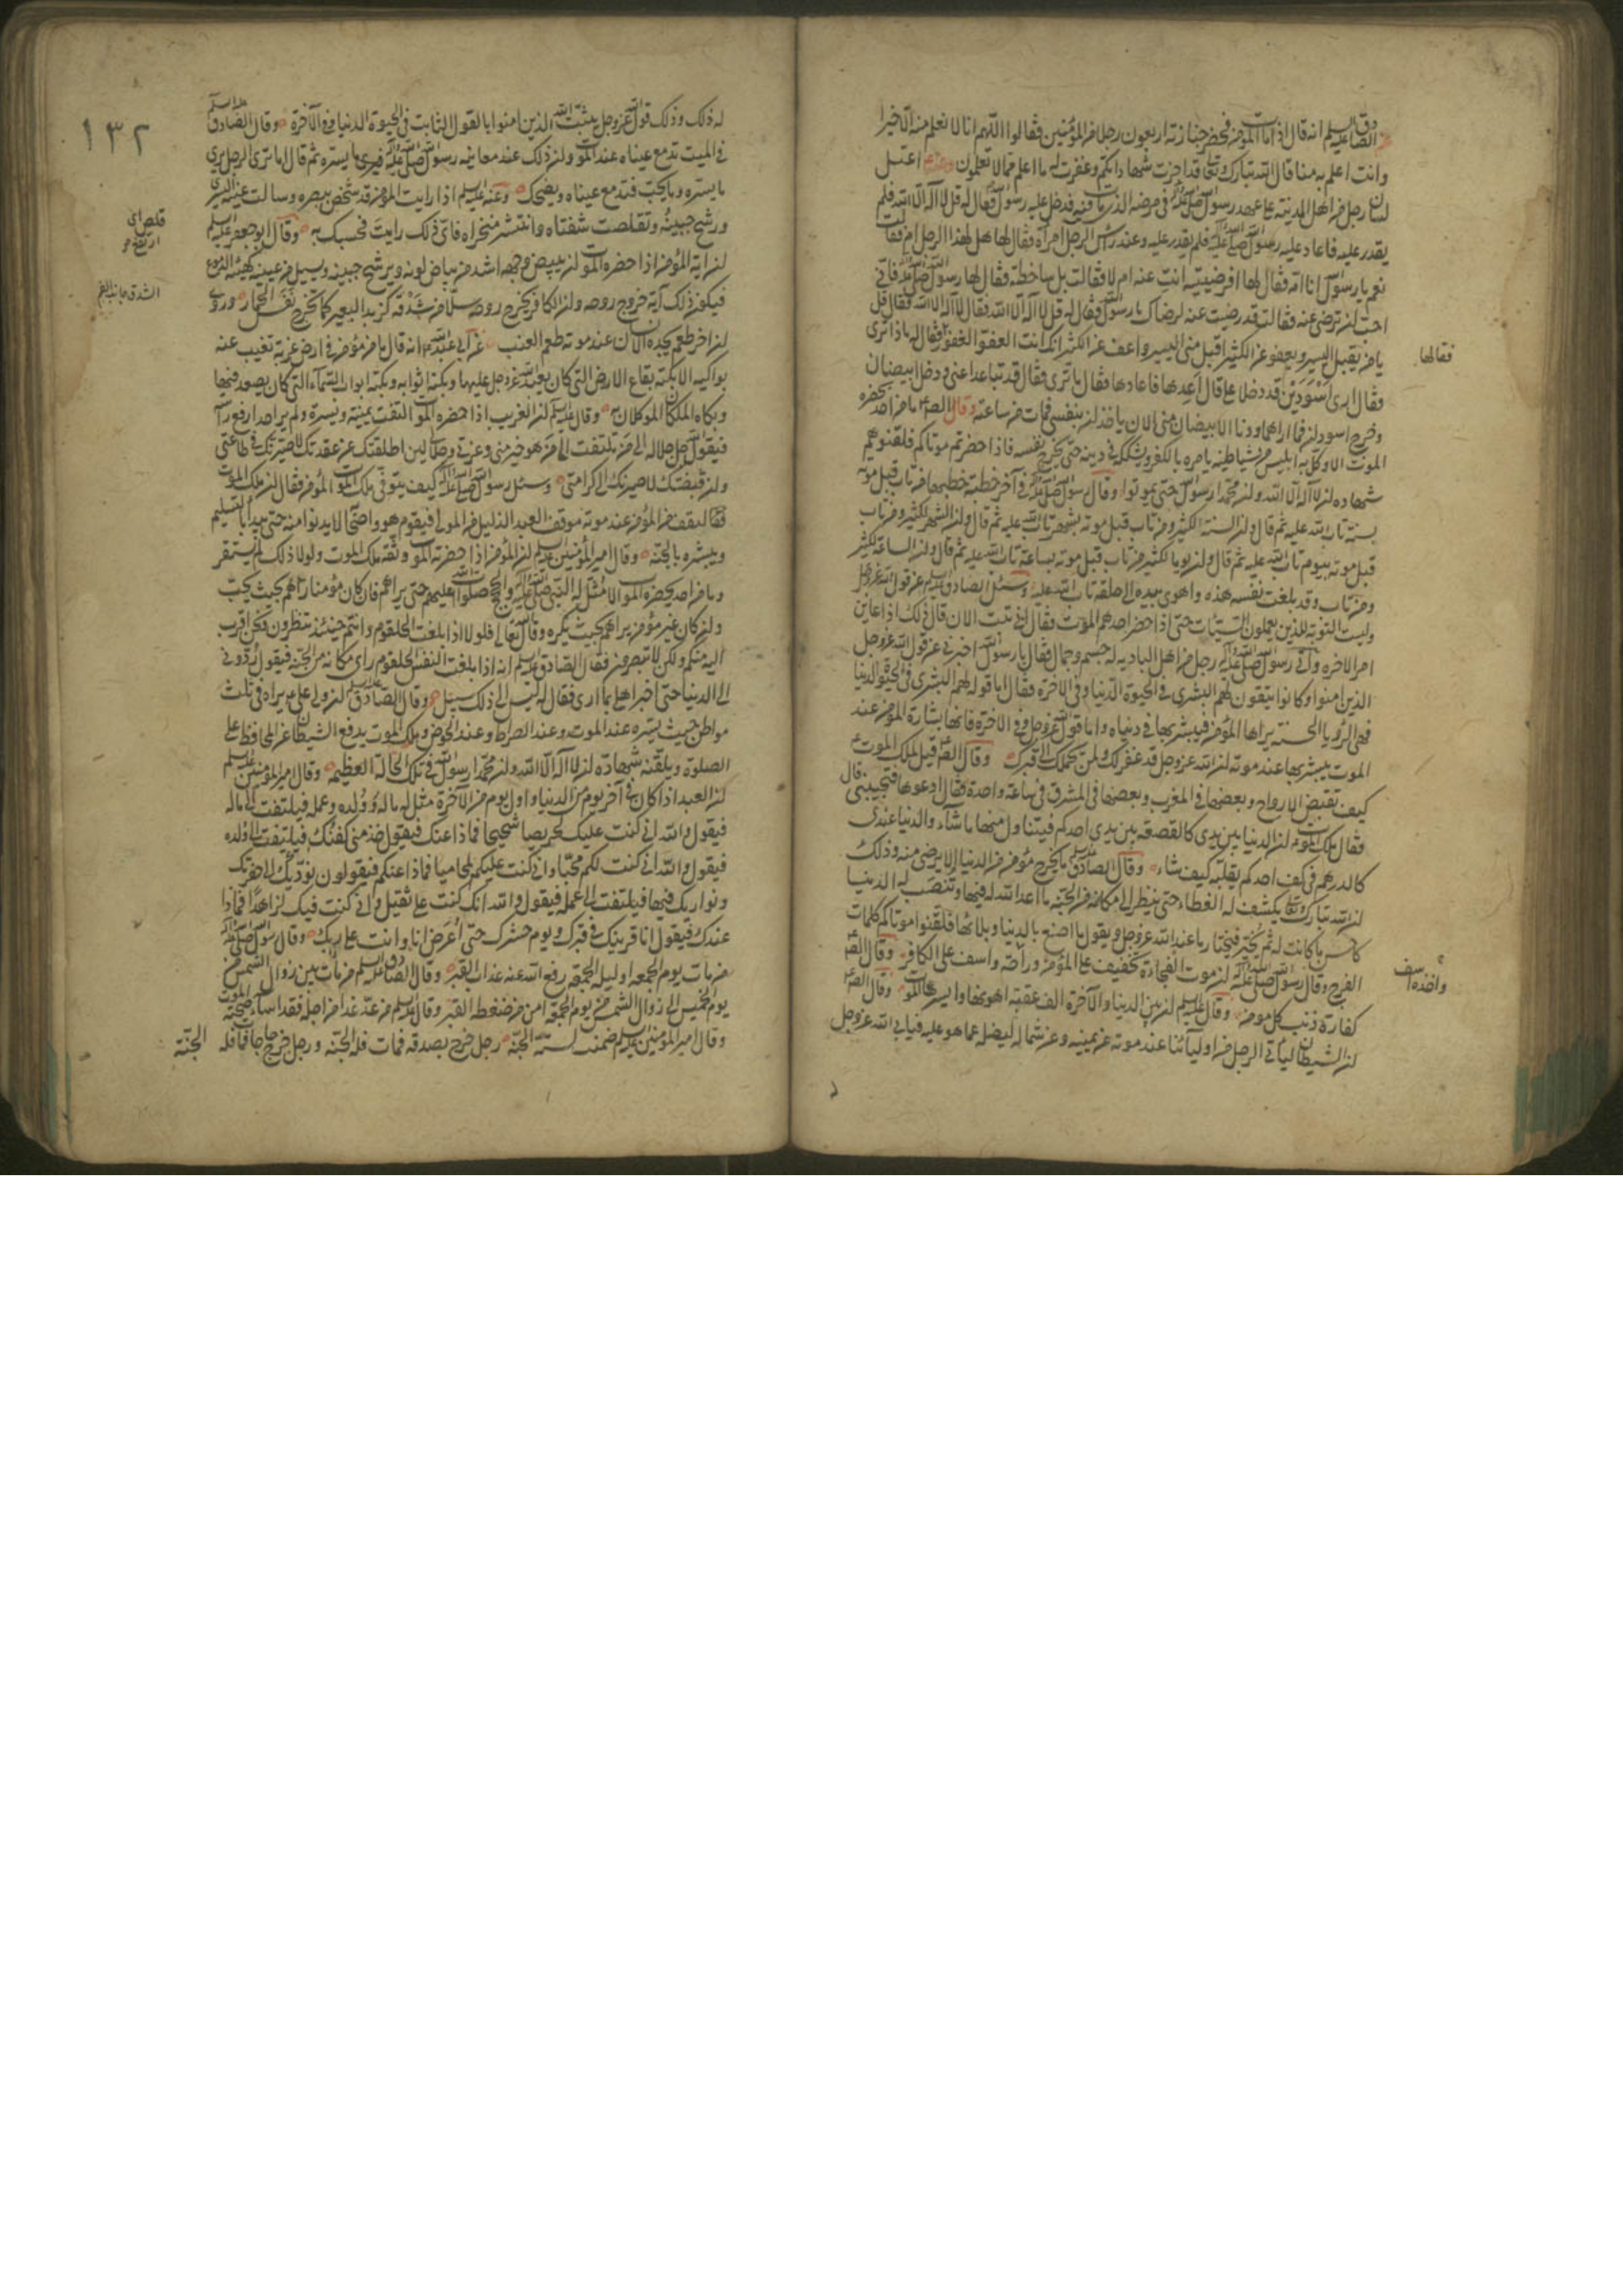 الصادق عليه السلم انه قال اذا مات المؤمن فحضر جنازته اربعون رجلا من المؤمنين فقالوا اللهم انا لا نعلم منه الا خيرا
وانت اعلم به منا قال الله تبارك وتعالى قد اجزت شهاداتكم وغفرت له ما اعلم مما لا تعلمون اعتقل
لسان رجل من اهل المدينة على عهد رسول الله صلى الله عليه وآله في مرضه الذي مات فيه فدخل عليه رسول الله فقال له قل لا اله الا الله فلم
يقدر عليه فاعاد عليه رسول الله صلى الله عليه وآله فلم يقدر عليه وعند راس الرجل امراة فقال لها هل لهذا الرجل ام فقالت
نعم يا رسول الله انا امه فقال لها افرضيتِ انت عنه ام لا فقالت بل ساخطة فقال لها رسول الله صلى الله عليه وآله فاني
احب لن ترضي عنه فقالت قد رضيت عنه لرضاك يا رسول الله فقال له قل لا اله الا الله فقال لا اله الا الله فقال قل
يا من يقبل اليسير ويعفو عن الكثير اقبل مني اليسير واعف عن الكثير انك انت العفو الغفور فقالها فقال له ماذا ترى
فقال ارى اسودين قد دخلا علي قال اعدها فاعادها فقال ما ترى فقال قد تباعدا عني ودخل ابيضان
وخرج اسودان فما اراهما ودنا الابيضان مني الان ياخذان بنفسي فمات من ساعته وقال الصادق ما من احد يحضره
الموت الا وكل به ابليس من شياطينه يامره بالكفر ويشككه في دينه حتى يخرج نفسه فاذا حضرتم موتاكم فلقنوهم
شهادة لن لا اله الا الله ولن محمدا رسول الله حتى يموتوا وقال رسول الله صلى الله عليه وآله في آخر خطبة خطبها من تاب قبل موته
بسنة تاب الله عليه ثم قال ولن السنة لكثير ومن تاب قبل موته بشهر تاب الله عليه ثم قال ولن الشهر لكثير ومن تاب
قبل موته بيوم تاب الله عليه ثم قال ولن يوما لكثير من تاب قبل موته بساعة تاب الله عليه ثم قال ولن الساعة لكثير
ومن تاب وقد بلغت نفسه هذه واهوى بيده الى حلقه تاب الله عليه وسئل الصادق عليه السلم عن قول الله عز وجل
وليست التوبة للذين يعملون السيئات حتى اذا حضر احدهم الموت فقال اني تبت الان قال ذلك اذا عاين
امر الاخرة واتى رسول الله صلى الله عليه وآله رجل من اهل البادية له جسم وجمال فقال يا رسول الله اخبرني عن قول الله عز وجل
الذين امنوا وكانوا يتقون لهم البشرى في الحيوة الدنيا وفي الاخرة فقال اما قوله لهم البشرى في الحيوة الدنيا
فهي الرؤيا الحسنة يراها المؤمن فيبشر بها في دنياه واما قول الله عز وجل وفي الاخرة فانها بشارة المؤمن عند
الموت يبشر بها عند موته لن الله عز وجل قد غفر لك ولمن يحملك الى قبرك وقال الصادق قيل لملك الموت
كيف تقبض الارواح وبعضها في المغرب وبعضها في المشرق في ساعة واحدة فقال ادعوها فتجيبني قال
فقال ملك الموت لن الدنيا بين يدي كالقصعة بين يدي احدكم فيتناول منها ما شآء والدنيا عندي
كالدرهم في كف احدكم يقلبه كيف شاء وقال الصادق عليه السلم ما يخرج مؤمن من الدنيا الا برضى منه وذلك
لن الله تبارك وتعالى يكشف له الغطاء حتى ينظر الى مكانه من الجنة وما اعد الله له فيها وتنصب له الدنيا
كاحسن ما كانت له ثم يخير فيختار ما عند الله عز وجل ويقول ما اصنع بالدنيا وبلائها فلقنوا موتاكم كلمات
الفرج وقال رسول الله صلى الله عليه وآله لن موت الفجاءة تخفيف على المؤمن وراحة واسف على الكافر وقال الصادق
كفارة ذنب كل مؤمن وقال عليه السلم لن بين الدنيا والآخرة الف عقبة اهونها وايسرها الموت وقال الصادق
لن الشيطان لياتي الرجل من اوليائنا عند موته عن يمينه وعن شماله ليضله عما هو عليه فيابى الله عز وجل
فقالها
واخذه اسف
له ذلك وذلك قول الله عز وجل يثبت الله الذين امنوا بالقول الثابت في الحيوة الدنيا وفي الآخرة وقال الصادق عليه السلم
في الميت تدمع عيناه عند الموت ولن ذلك عند معاينة رسول الله صلى الله عليه وآله فيرى ما يسره ثم قال اما ترى الرجل يرى
ما يسره وما يحب فتدمع عيناه ويضحك وعنه عليه السلم اذا رايت المؤمن قد شخص ببصره وسالت عينه اليسرى
ورشح جبينه وتقلصت شفتاه وانتشر منخراه فاي ذلك رايت فحسبك به وقال ابو جعفر عليه السلم
لن اية المؤمن اذا حضره الموت لن يبيض وجهه اشد من بياض لونه ويرشح جبينه ويسيل من عينيه كهيئة الدموع
فيكون ذلك آية خروج روحه ولن الكافر يخرج روحه سلا من شدقه كزبد البعير كما تخرج نفس الحمار وروي
لن اخر طعم يجده الانسان عند موته طعم العنب عن ابي عبد الله انه قال ما من مؤمن في ارض غربة تغيب عنه
بواكيه الا بكته بقاع الارض التي كان يعبد الله عز وجل عليها وبكته اثوابه وبكته ابواب السمآء التي كان يصعد فيها
وبكاه الملكان الموكلان به وقال عليه السلم لن الغريب اذا حضره الموت التفت يمينه ويسرة ولم ير احدا رفع راسه
فيقول الله جل جلاله الى من تلتفت الى من هو خير مني وعزتي وجلالي لئن اطلقتك عن عقدتك لاصيرنك في طاعتي
ولن قبضتك لاصيرنك الى كرامتي وسئل رسول الله صلى الله عليه وآله كيف يتوفى ملك الموت المؤمن فقال لن ملك الموت
ليقف من المؤمن عند موته موقف العبد الذليل من المولى فيقوم هو واصحابه لا يدنوا منه حتى يبدأ بالتسليم
ويبشره بالجنة وقال امير المؤمنين عليه السلم لن المؤمن اذا حضره الموت وثقه ملك الموت ولولا ذلك لم يستقر
وما من احد يحضره الموت الا مثل له النبي صلى الله عليه وآله والحجج صلوات الله عليهم حتى يراهم فان كان مؤمنا راهم بحيث يحب
ولن كان غير مؤمن يراهم بحيث يكره وقال الله تعالى فلولا اذا بلغت الحلقوم وانتم حينئذ تنظرون ونحن اقرب
اليه منكم ولكن لا تبصرون فقال الصادق عليه السلم انه اذا بلغت النفس الحلقوم راى مكانه من الجنة فيقول ردوني
الى الدنيا حتى اخبر اهلي بما ارى فقال له ليس الى ذلك سبيل وقال الصادق عليه السلم لن ولي علي يراه في ثلث
مواطن حيث يسره عند الموت وعند الصراط وعند الحوض وملك الموت يدفع الشيطان عن المحافظ على
الصلوة ويلقنه شهادة لن لا اله الا الله ولن محمدا رسول الله في تلك الحالة العظيمة وقال امير المؤمنين عليه السلم
لن العبد اذا كان في آخر يوم من الدنيا واول يوم من الآخرة مثل له ماله وولده وعمله فيلتفت الى ماله
فيقول والله اني كنت عليك لحريصا شحيحا فماذا عندك فيقول خذ مني كفنك فيلتفت الى ولده
فيقول والله اني كنت لكم محبا واني كنت عليكم لمحاميا فماذا عندكم فيقولون نؤديك الى حفرتك
ونواريك فيها فيلتفت الى عمله فيقول والله انك كنت علي ثقيل واني كنت فيك لزاهدا فماذا
عندك فيقول انا قرينك في قبرك ويوم حشرك حتى اعرض انا وانت على ربك وقال رسول الله صلى الله عليه وآله
من مات يوم الجمعه او ليلة الجمعة رفع الله عنه عذاب القبر وقال الصادق عليه السلم من مات بين زوال الشمس من
يوم الخميس الى زوال الشمس من يوم الجمعة امن من ضغطه القبر وقال عليه السلم من عد غدا من اجله فقد اساء صحبة الموت
وقال امير المؤمنين عليه السلم ضمنت لستة الجنة رجل خرج بصدقه فمات فله الجنة ورجل خرج حاجا فمات فله
الجنة
١٣٢
قلص اي
ارتفع
الشدق جانب الفم